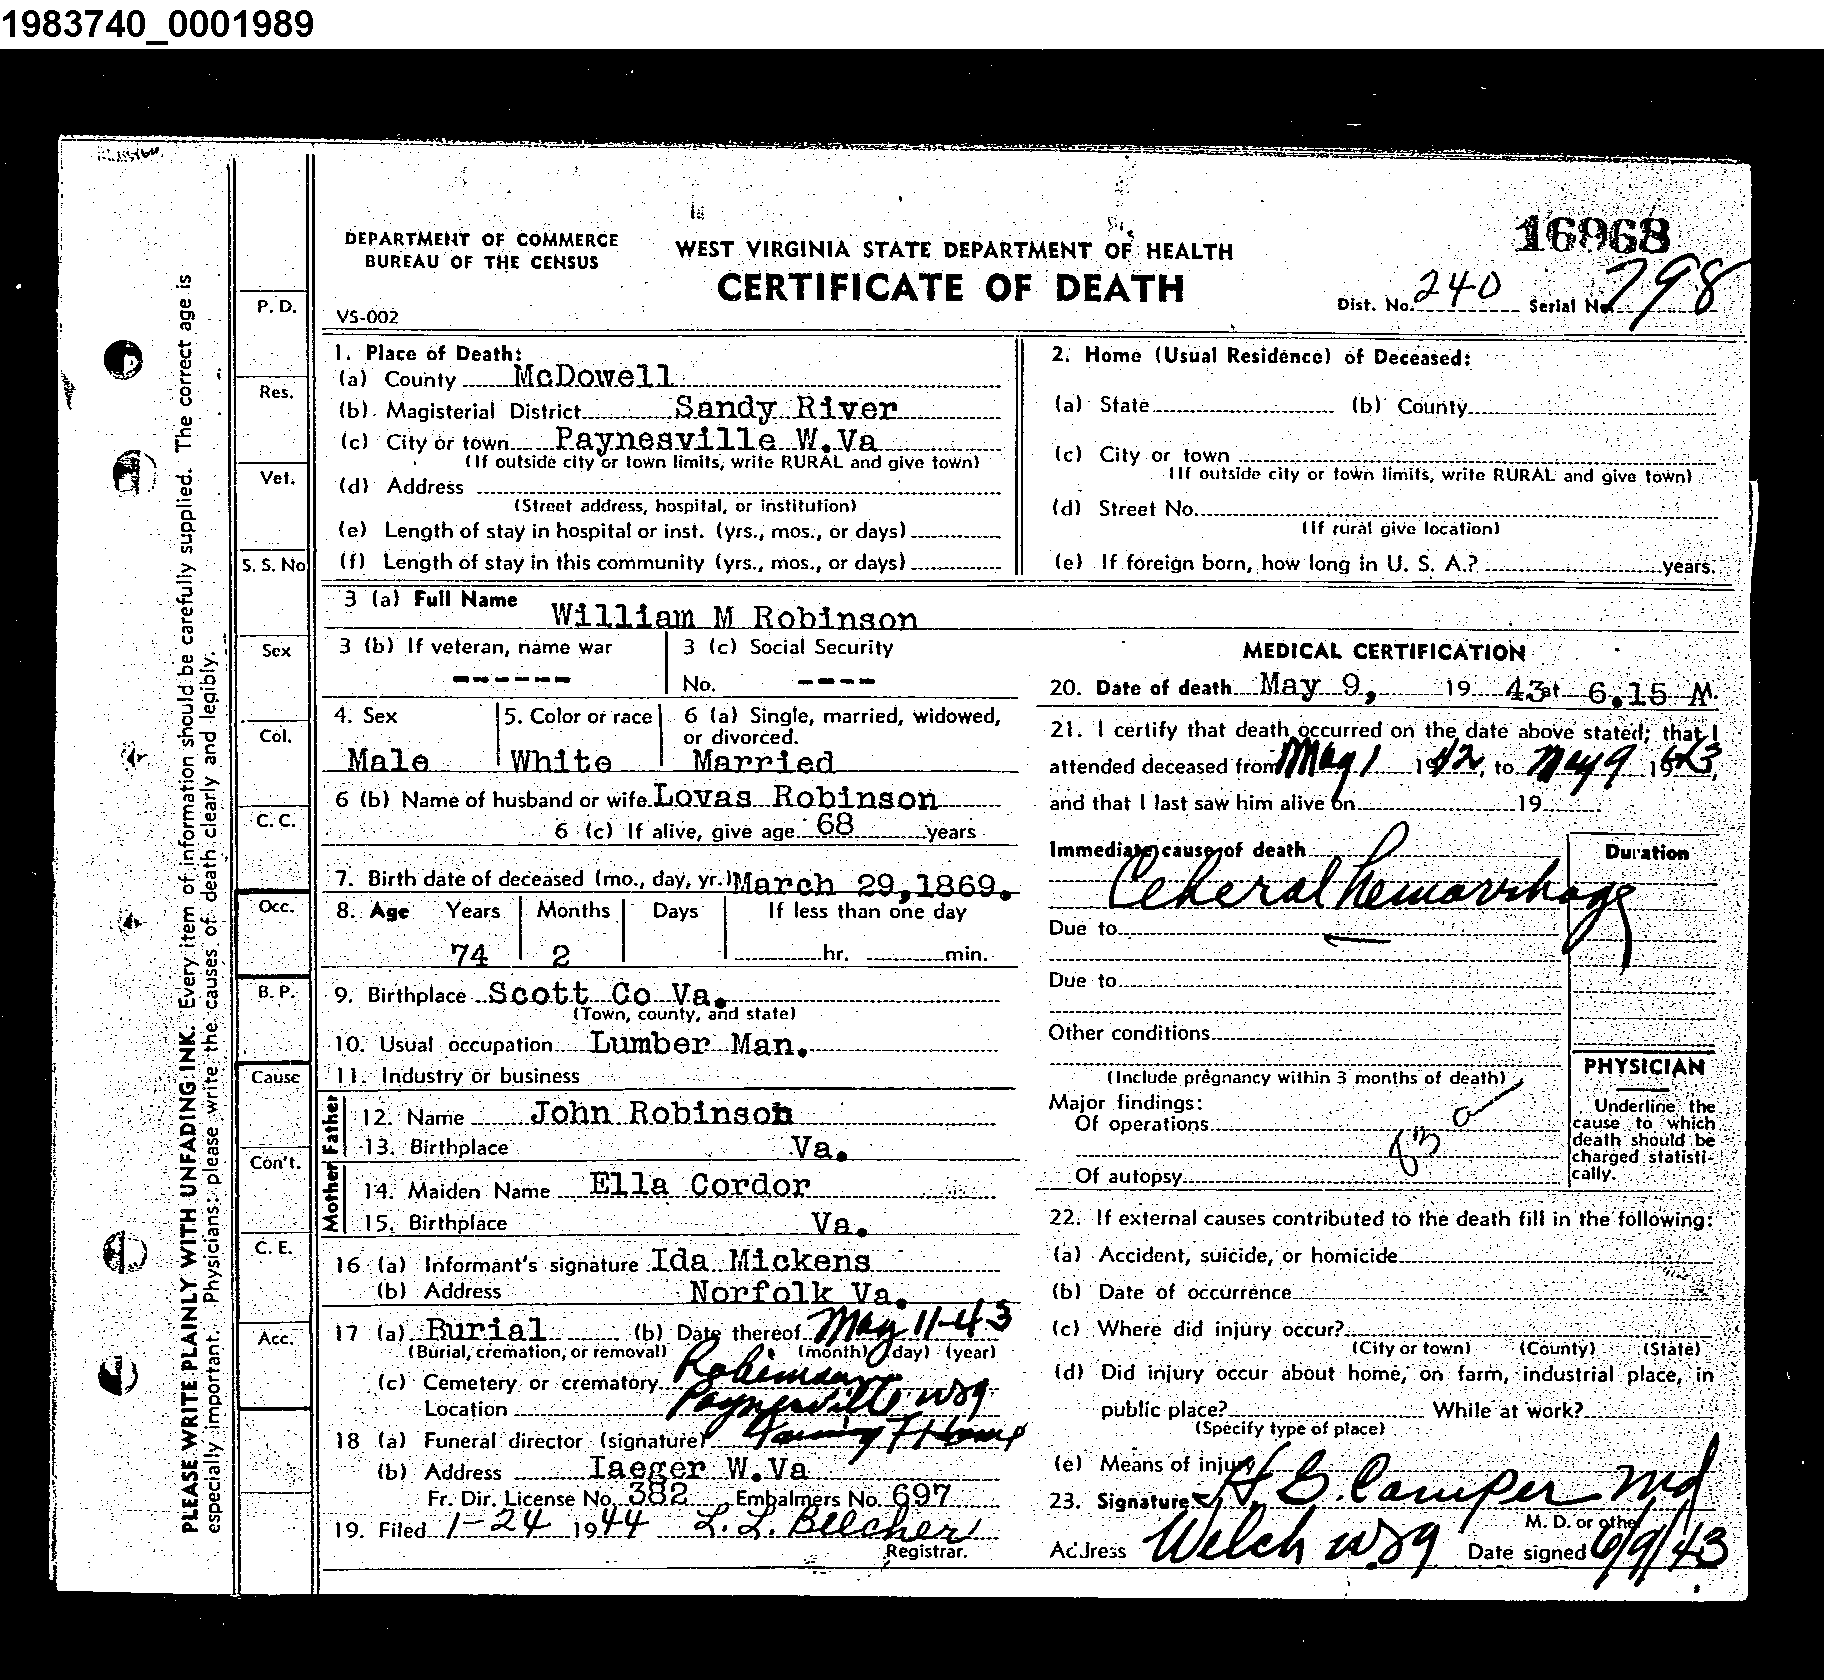 1983740_0001989
16968
DEPARTMENT OF COMMERCE
BUREAU OF THE CENSUS
WEST VIRGINIA STATE DEPARTMENT OF HEALTH
CERTIFICATE OF DEATH
VS-002
Dist. No. 240 Serial No. 798
PLEASE WRITE PLAINLY WITH UNFADING INK. Every item of information should be carefully supplied. The correct age is
especially important. Physicians: please write the causes of death clearly and legibly.
P. D.
Res.
Vet.
S. S. No
Sex
Col.
C. C.
Occ.
B. P.
Cause
Con't.
C. E.
Acc.
1. Place of Death:
(a) County McDowell
(b) Magisterial District Sandy River
(c) City or town Paynesville W.Va
(If outside city or town limits, write RURAL and give town)
(d) Address
(Street address, hospital, or institution)
(e) Length of stay in hospital or inst. (yrs., mos., or days)
(f) Length of stay in this community (yrs., mos., or days)
2. Home (Usual Residence) of Deceased:
(a) State (b) County
(c) City or town
(If outside city or town limits, write RURAL and give town)
(d) Street No.
(If rural give location)
(e) If foreign born, how long in U. S. A.? years.
3 (a) Full Name William M Robinson
3 (b) If veteran, name war ------
3 (c) Social Security
No. ----
4. Sex Male
5. Color or race White
6 (a) Single, married, widowed,
or divorced. Married
6 (b) Name of husband or wife Lovas Robinson
6 (c) If alive, give age 68 years
7. Birth date of deceased (mo., day, yr.) March 29,1869.
8. Age Years Months Days If less than one day
74 2 hr. min.
9. Birthplace Scott Co Va.
(Town, county, and state)
10. Usual occupation Lumber Man.
11. Industry or business
Father
12. Name John Robinson
13. Birthplace Va.
Mother
14. Maiden Name Ella Cordor
15. Birthplace Va.
16 (a) Informant's signature Ida Mickens
(b) Address Norfolk Va.
17 (a) Burial (b) Date thereof May 11-43
(Burial, cremation, or removal) (month) (day) (year)
(c) Cemetery or crematory Robinson
Location Paynesville W Va
18 (a) Funeral director (signature) F Home
(b) Address Iaeger W.Va
Fr. Dir. License No. 382 Embalmers No. 697
19. Filed 1-24 1944 L. L. Belcher
Registrar.
MEDICAL CERTIFICATION
20. Date of death May 9, 19 43 at 6.15 M.
21. I certify that death occurred on the date above stated; that I
attended deceased from May 1 1942, to May 9 1943,
and that I last saw him alive on 19
Immediate cause of death Duration
Cereral hemorrhage
Due to
Due to
Other conditions
(Include pregnancy within 3 months of death)
Major findings:
Of operations
Of autopsy
83
PHYSICIAN
Underline the
cause to which
death should be
charged statisti-
cally.
22. If external causes contributed to the death fill in the following:
(a) Accident, suicide, or homicide
(b) Date of occurrence
(c) Where did injury occur?
(City or town) (County) (State)
(d) Did injury occur about home, on farm, industrial place, in
public place? While at work?
(Specify type of place)
(e) Means of injury
23. Signature H. G. Camper Md
M. D. or other
Address Welch W Va Date signed 6/9/43